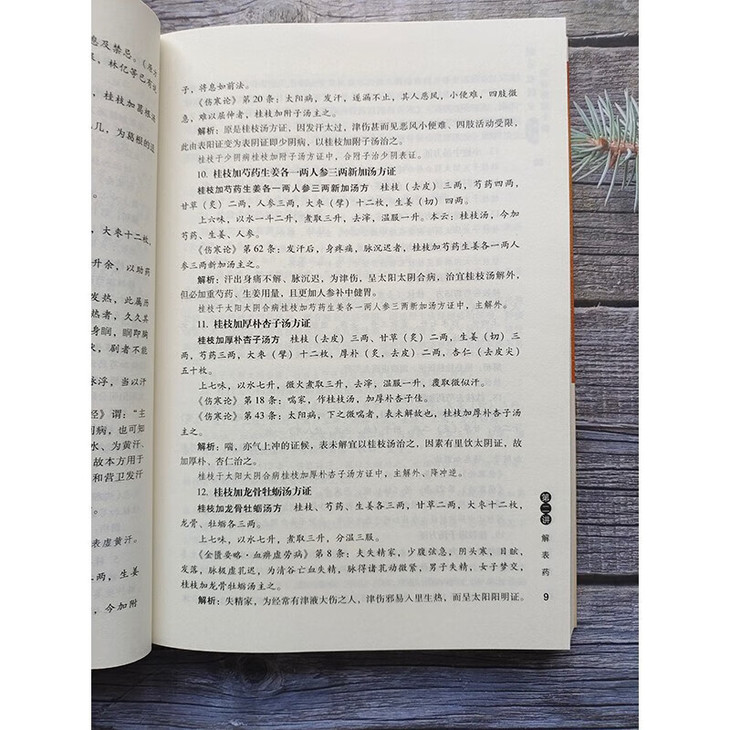 息及禁忌。《局方
林亿等已有说
桂枝加葛根汤
几，为葛根的适
大枣十二枚，
升余，以助药
发热，此属汤
热者，久久其
身瞤，瞤即胸
状，剧者不能
脉浮，当以汗
经》谓：“主
阴病，也可知
水、为黄汗。
故本方用于
和营卫发汗
表虚黄汗。
两，生姜
今加附
子，将息如前法。
《伤寒论》第 20 条：太阳病，发汗，遂漏不止，其人恶风，小便难，四肢微
急，难以屈伸者，桂枝加附子汤主之。
解析：原是桂枝汤方证，因发汗太过，津伤甚而见恶风小便难、四肢活动受限，
此由表阳证变为表阴证即少阴病，以桂枝加附子汤治之。
桂枝于少阴病桂枝加附子汤方证中，合附子治少阴表证。
10. 桂枝加芍药生姜各一两人参三两新加汤方证
桂枝加芍药生姜各一两人参三两新加汤方 桂枝（去皮）三两，芍药四两，
甘草（炙）二两，人参三两，大枣（擘）十二枚，生姜（切）四两。
上六味，以水一斗二升，煮取三升，去滓，温服一升。本云：桂枝汤，今加
芍药、生姜、人参。
《伤寒论》第 62 条：发汗后，身疼痛，脉沉迟者，桂枝加芍药生姜各一两人
参三两新加汤主之。
解析：汗出身痛不解、脉沉迟，为津伤，呈太阳太阴合病，治宜桂枝汤解外，
但必加重芍药、生姜用量，且更加人参补中健胃。
桂枝于太阳太阴合病桂枝加芍药生姜各一两人参三两新加汤方证中，主解外。
11. 桂枝加厚朴杏子汤方证
桂枝加厚朴杏子汤方 桂枝（去皮）三两、甘草（炙）二两，生姜（切）三
两，芍药三两，大枣（擘）十二枚，厚朴（炙，去皮）二两，杏仁（去皮尖）
五十枚。
上七味，以水七升，微火煮取三升，去滓，温服一升，覆取微似汗。
《伤寒论》第 18 条：喘家，作桂枝汤，加厚朴杏子佳。
《伤寒论》第 43 条：太阳病，下之微喘者，表未解故也，桂枝加厚朴杏子汤
主之。
解析：喘，亦气上冲的证候，表未解宜以桂枝汤治之，因素有里饮太阴证，故
加厚朴、杏仁治之。
桂枝于太阳太阴合病桂枝加厚朴杏子汤方证中，主解外、降冲逆。
12. 桂枝加龙骨牡蛎汤方证
桂枝加龙骨牡蛎汤方 桂枝、芍药、生姜各三两，甘草二两，大枣十二枚，
龙骨、牡蛎各三两。
上七味，以水七升，煮取三升，分温三服。
《金匮要略·血痹虚劳病》第 8 条：夫失精家，少腹弦急，阴头寒，目眩，
发落，脉极虚芤迟，为清谷亡血失精，脉得诸芤动微紧，男子失精，女子梦交，
桂枝加龙骨牡蛎汤主之。
解析：失精家，为经常有津液大伤之人，津伤邪易入里生热，而呈太阳阳明证。
第二讲
解表药
9